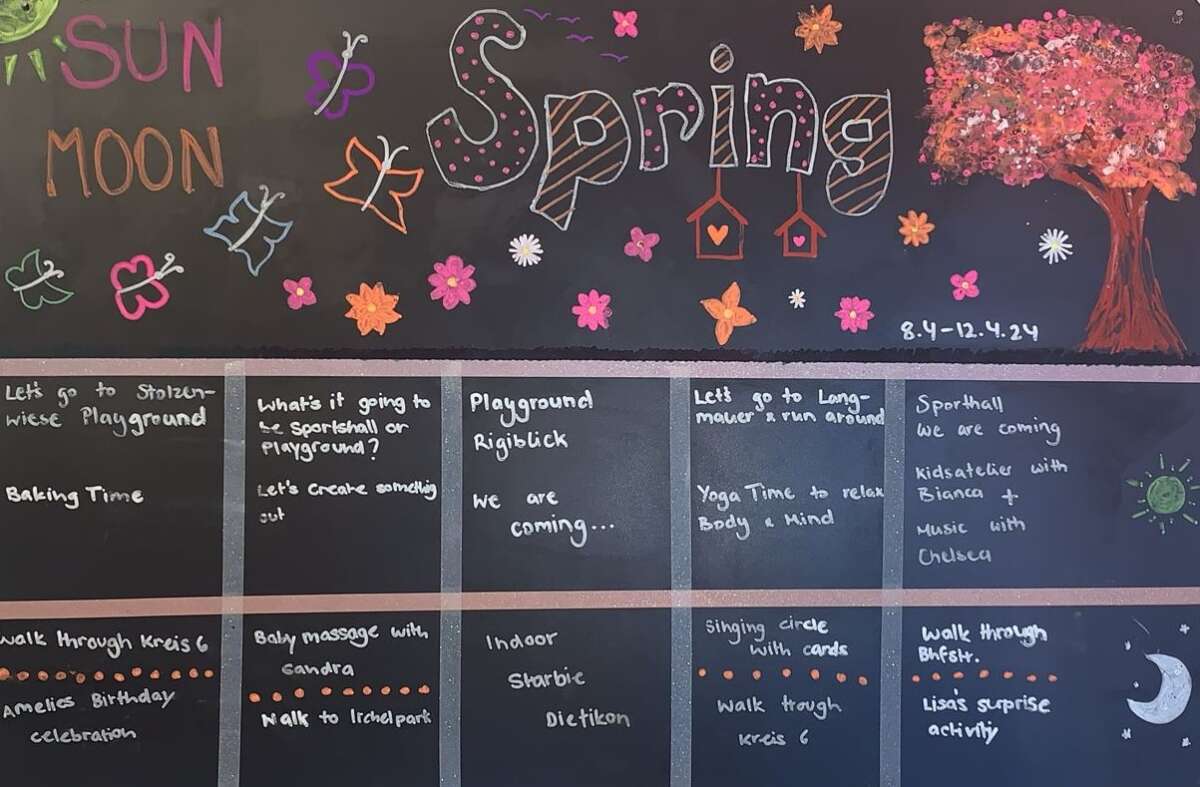 SUN
MOON
Spring
8.4-12.4.24
Let's go to Stolzen-
wiese Playground
Baking Time
What's it going to
be Sportshall or
Playground?
Let's create something
out
Playground
Rigiblick
We are
coming...
Let's go to Lang-
mauer & run around
Yoga Time to relax
Body & Mind
Sporthall
We are coming
Kidsatelier with
Bianca +
Music with
Chelsea
Walk through Kreis 6
Amelies Birthday
celebration
Baby massage with
Sandra
Walk to Irchelpark
Indoor
Starbie
Dietikon
Singing circle
with cards
Walk trough
Kreis 6
Walk through
Bhfstr.
Lisa's surprise
activity